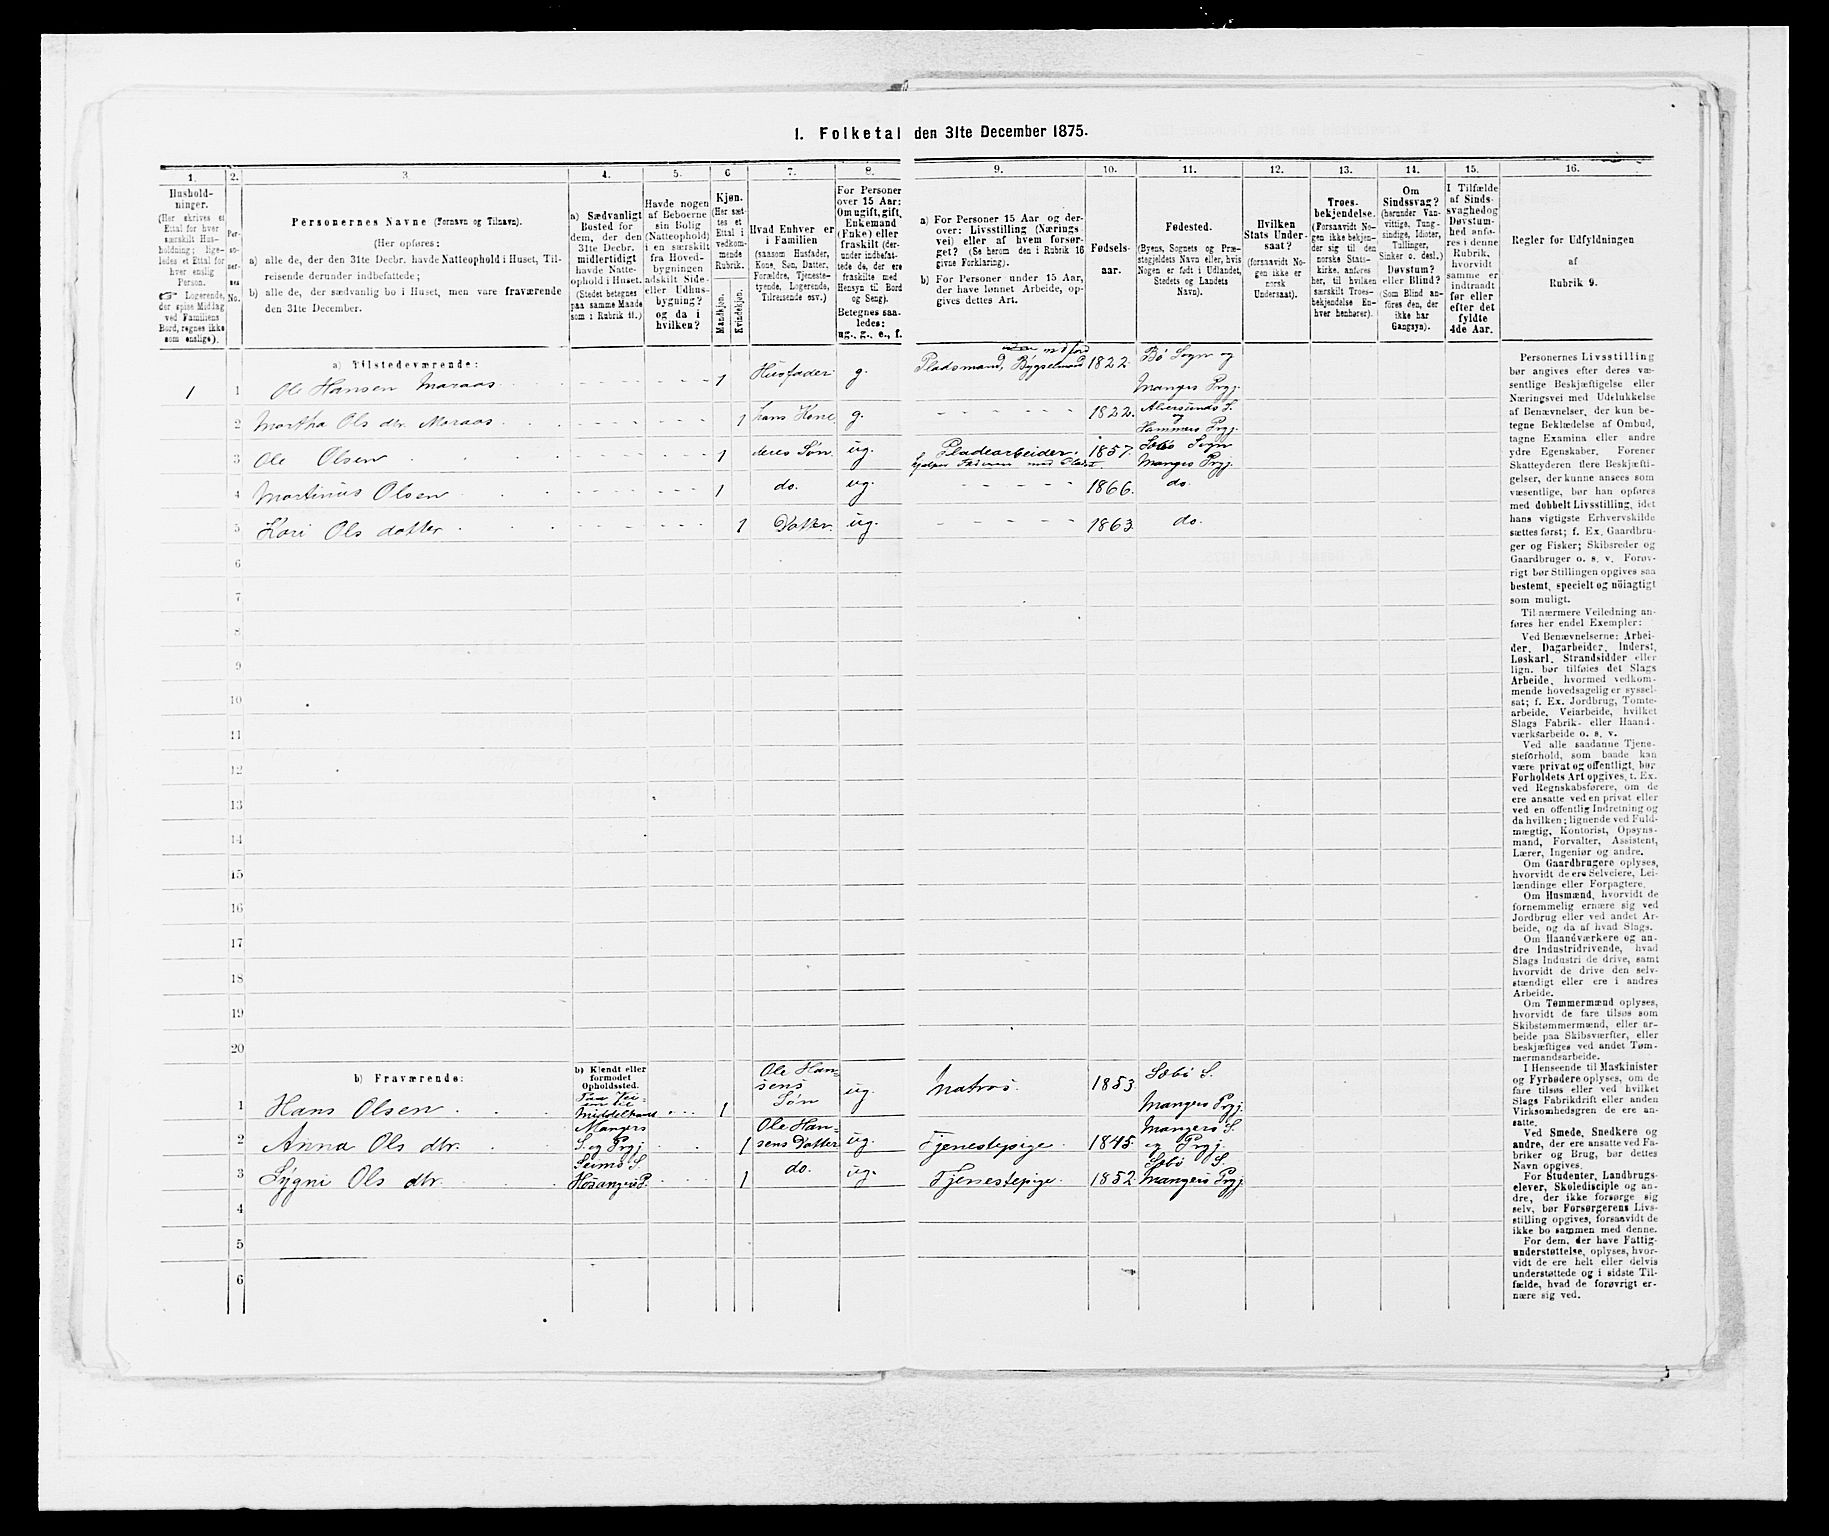 1. Folketal den 31te December 1875.
1.
2.
3.
4.
5.
6
7.
8.
9.
10.
11.
12.
13.
14.
15.
16.
Hushold-
ninger.
(Her skrives et
Ettal for hver
særskilt Hus-
holdning; lige-
ledes et Ettal for
hver enslig
Person.
☞ Logerende,
der spise Middag
ved Familiens
Bord, regnes ikke
som enslige).
Per-
so-
ner-
nes
No.
Personernes Navne (Fornavn og Tilnavn).
(Her opføres:
a) alle de, der den 31te Decbr. havde Natteophold i Huset, Til-
reisende derunder indbefattede;
b) alle de, der sædvanlig bo i Huset, men vare fraværende
den 31te December.
a) Sædvanligt
Bosted for
dem, der den
31te Decbr.
midlertidigt
havde Natte-
ophold i Huset.
(Stedet betegnes
paa samme Maade
som i Rubrik 11.)
Havde nogen
af Beboerne
sin Bolig
(Natteophold)
i en særskilt
fra Hoved-
bygningen
adskilt Side-
eller Udhus-
bygning?
og da i
hvilken?
Kjøn.
(Her sæt-
tes et
Ettal i
vedkom-
mende
Rubrik.
Mandkjøn.
Kvindekjøn.
Hvad Enhver er
i Familien
(saasom Husfader,
Kone, Søn, Datter,
Forældre, Tjeneste-
tyende, Logerende,
Tilreisende osv.)
For Personer
over 15 Aar:
Om ugift, gift,
Enkemand
(Enke) eller
fraskilt (der-
under indbefat-
tede de, der ere
fraskilte med
Hensyn til Bord
og Seng).
Betegnes saa-
ledes:
ug., g., e., f.
a) For Personer 15 Aar og der-
over: Livsstilling (Nærings
vei) eller af hvem forsør-
get? (Se herom den i Rubrik 16
givne Forklaring).
b) For Personer under 15 Aar,
der have lønnet Arbeide, op-
gives dettes Art.
Fødsels-
aar.
Fødested.
(Byens, Sognets og Præ-
stegjeldets Navn eller, hvis
Nogen er født i Udlandet,
Stedets og Landets
Navn).
Hvilken
Stats Under-
saat?
(forsaavidt No-
gen ikke er
norsk
Undersaat).
Troes-
bekjendelse.
(Forsaavidt No-
gen ikke bekjen-
der sig til den
norske Stats-
kirke, anføres
her, til hvilken
særskilt Troes-
bekjendelse En-
hver henhører).
Om
Sindssvag?
(herunder Van-
vittige, Tung-
sindige, Idioter,
Tullinger,
Sinker o. desl.)
Døvstum?
eller Blind?
(Som Blind an-
føres den, der
ikke har
Gangsyn).
I Tilfælde
af Sinds-
svaghedog
Døvstum-
hed anfø-
res i denne
Rubrik,
hvorvidt
samme er
indtraadt
før eller
efter det
fyldte
4de Aar.
Regler for Udfyldningen
af
Rubrik 9.
a) Tilstedeværende:
1 1 Ole Hansen Maraas 1 Husfader g. Pladsmand, Bygselmand med Jord 1822. Bø Sogn og
Mangers Prgj.
2 Martha Ols dtr. Maraas 1 hans Kone g. 1822. Alversunds S.
og
Hammers Prgj.
3 Ole Olsen 1 deres Søn ug. 1857. Sæbø Sogn
Mangers Prgj.
4 Martinus Olsen 1 do. ug. 1866. do.
5 Kari Ols datter 1 Datter ug. 1863. do.
6
7
8
9
10
11
12
13
14
15
16
17
18
19
20
b) Fraværende:
b) Kjendt eller
formodet
Opholdssted.
1 Hans Olsen Paa Vei-
en til
Middelhavet 1 Ole Han-
sens
Søn ug. Matros. 1853. Sæbø S.
Mangers Prgj.
2 Anna Ols dtr. Mangers
S. og Prgj. 1 Ole Han-
sens Datter ug. Tjenestepige. 1845. Mangers S.
og Prgj.
3 Sygni Ols dtr. Seims S.
Hosangers P. 1 do. ug. Tjenestepige. 1852. Sæbø S.
Mangers Prgj.
4
5
6
Personernes Livsstilling
bør angives efter deres væ-
sentlige Beskjæftigelse eller
Næringsvei med Udelukkelse
af Benævnelser, der kun be-
tegne Beklædelse af Ombud,
tagne Examina eller andre
ydre Egenskaber. Forener
Skatteyderen flere Beskjæfti-
gelser, der kunne ansees som
væsentlige, bør han opføres
med dobbelt Livsstilling, idet
hans vigtigste Erhvervskilde
sættes først; f. Ex. Gaardbru-
ger og Fisker; Skibsreder og
Gaardbruger o. s. v. Forøv-
rigt bør Stillingen opgives saa
bestemt, specielt og nöiagtigt
som muligt.
Til nærmere Veiledning an-
føres her endel Exempler:
Ved Benævnelserne: Arbei-
der, Dagarbeider, Inderst,
Løskarl, Strandsidder eller
lign. bør tilføies det Slags
Arbeide, hvormed vedkom-
mende hovedsagelig er syssel-
sat; f. Ex. Jordbrug, Tomte-
arbeide, Veiarbeide, hvilket
Slags Fabrik- eller Haand-
værksarbeide o. s. v.
Ved alle saadanne Tjene-
steforhold, som baade kan
være privat og offentligt, bør
Forholdets Art opgives, t. Ex.
ved Regnskabsførere, om de
ere ansatte ved en privat eller
ved en offentlig Indretning og
da hvilken; lignende ved Fuld-
mægtig, Kontorist, Opsyns-
mand, Forvalter, Assistent,
Lærer, Ingeniør og andre.
Om Gaardbrugere oplyses,
hvorvidt de ere Selveiere, Lei-
lændinge eller Forpagtere.
Om Husmænd, hvorvidt de
fornemmelig ernære sig ved
Jordbrug eller ved andet Ar-
beide, og da af hvad Slags.
Om Haandværkere og an-
dre Industridrivende, hvad
Slags Industri de drive, samt
hvorvidt de drive den selv-
stændigt eller ere i andres
Arbeide.
Om Tømmermænd oplyses,
hvorvidt de fare tilsøs som
Skibstømmermænd, eller ar-
beide paa Skibsværfter, eller
beskjæftiges ved andet Tøm-
mermandsarbeide.
I Henseende til Maskinister
og Fyrbødere oplyses, om de
fare tilsøs eller ved hvilket
Slags Fabrikdrift eller anden
Virksomhedsgren de ere an-
satte.
Ved Smede, Snedkere og
andre, der ere ansatte ved Fa-
briker og Brug, bør dettes
Navn opgives.
For Studenter, Landbrugs-
elever, Skoledisciple og an-
dre, der ikke forsørge sig
selv, bør Forsørgerens Livs-
stilling opgives, forsaavidt de
ikke bo sammen med denne.
For dem, der have Fattig-
understøttelse, oplyses, hvor-
vidt de ere helt eller delvis
understøttede og i sidste Til-
fælde, hvad de forøvrigt er-
nære sig ved.